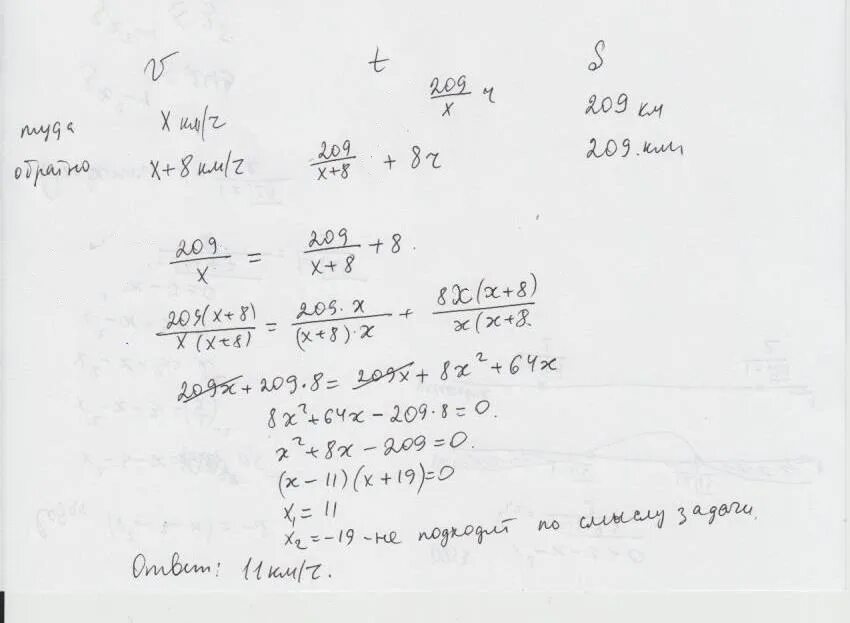 V t S
туда x км/ч 209/x ч 209 км
обратно x+8 км/ч 209/(x+8) + 8ч 209 км
209/x = 209/(x+8) + 8.
209(x+8)/(x(x+8)) = 209·x/((x+8)·x) + 8x(x+8)/(x(x+8
209x + 209·8 = 209x + 8x² + 64x
8x² + 64x – 209·8 = 0.
x² + 8x – 209 = 0.
(x – 11)(x + 19) = 0
x₁ = 11
x₂ = –19 – не подходит по смыслу задачи.
Ответ: 11 км/ч.